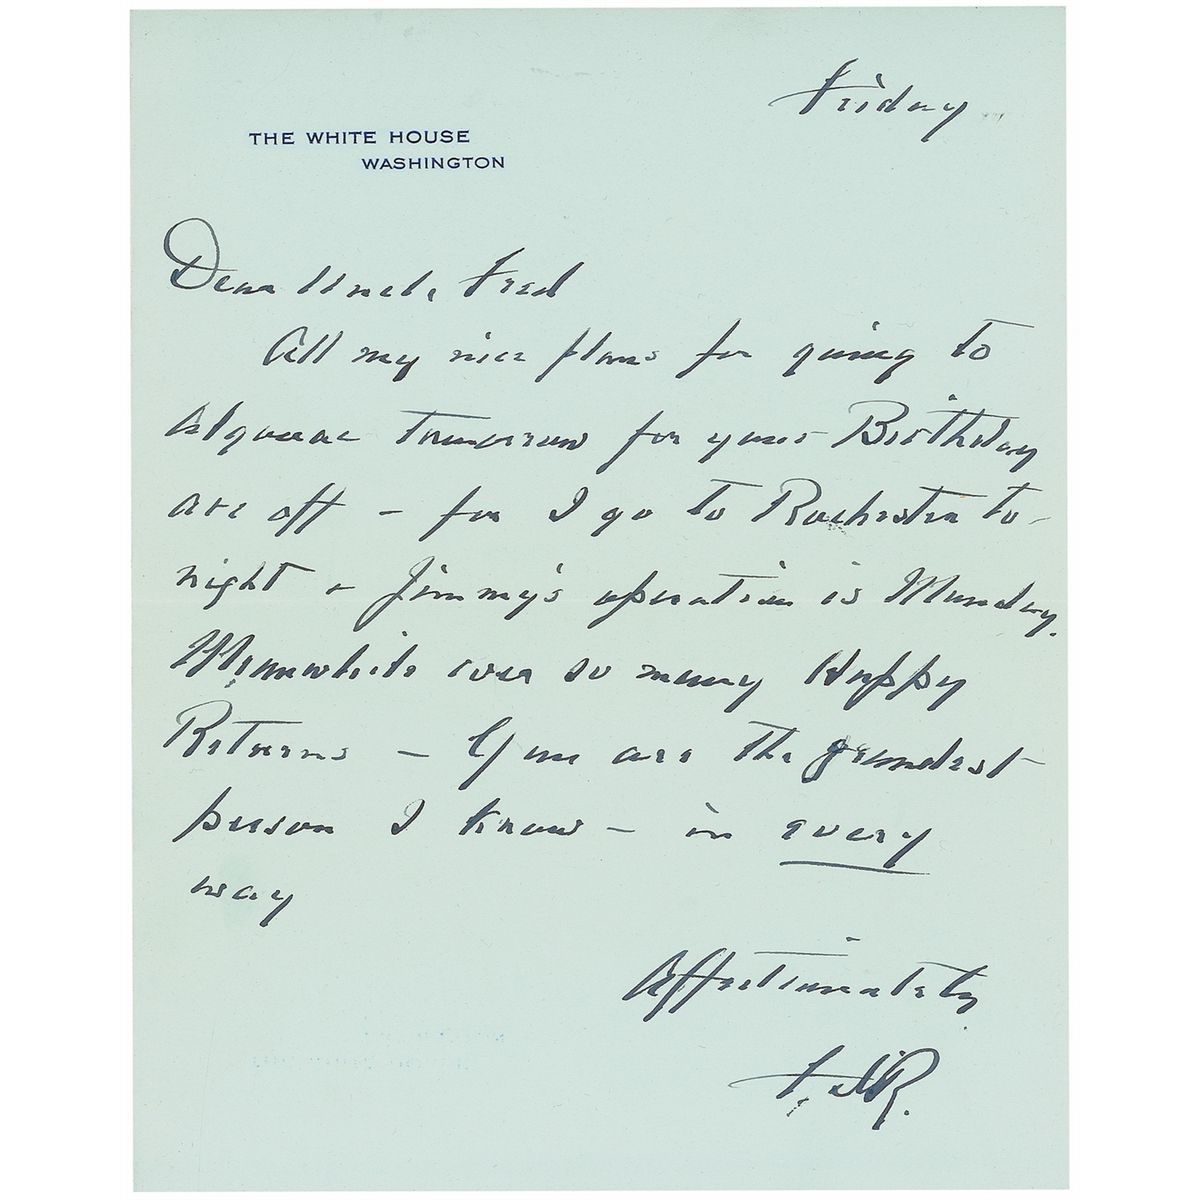 Friday
THE WHITE HOUSE
WASHINGTON
Dear Uncle Fred
All my nice plans for going to
Algonac tomorrow for your Birthday
are off – for I go to Rochester to-
night & Jimmy's operation is Monday.
Meanwhile ever so many Happy
Returns – You are the grandest
person I know – in every
way
Affectionately
FDR.